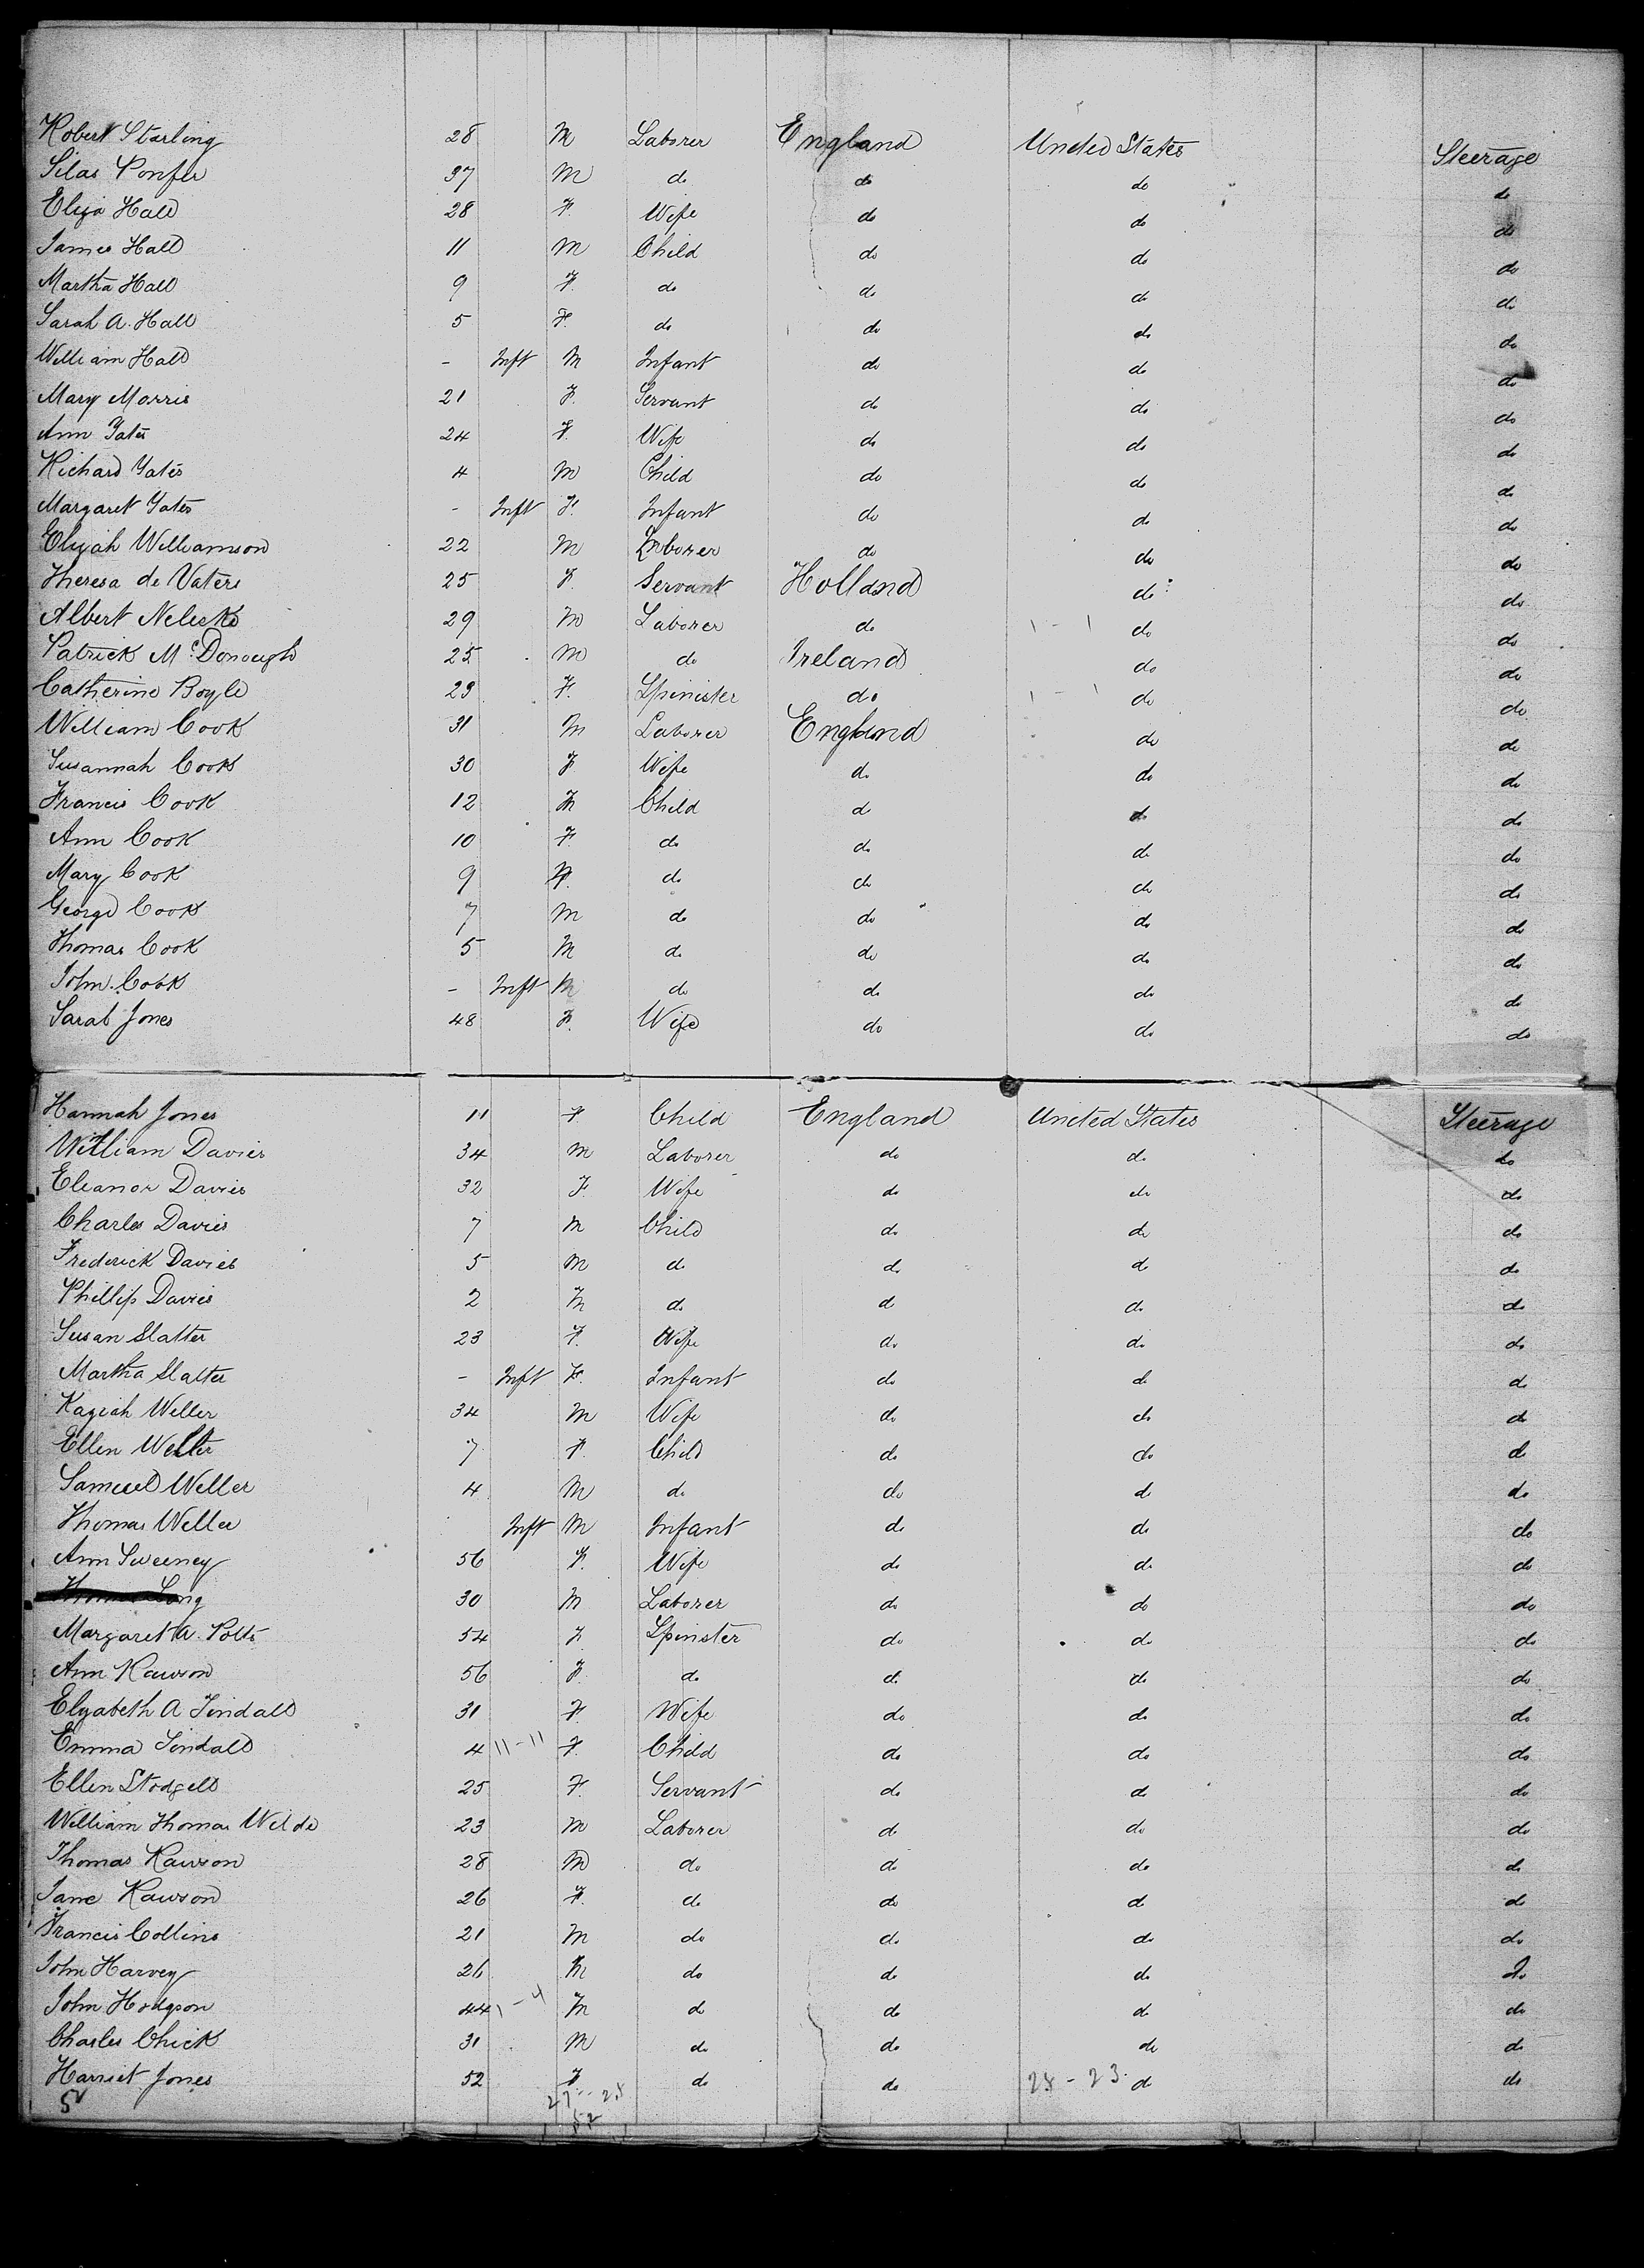 Robert Starling 28 M Laborer England United States Steerage
Silas Ponfer 37 M do do do do
Eliza Hall 28 F. Wife do do do
James Hall 11 M Child do do do
Martha Hall 9 F. do do do do
Sarah A. Hall 5 F. do do do do
William Hall - Inft M Infant do do do
Mary Morris 21 F. Servant do do do
Ann Yates 24 F. Wife do do do
Richard Yates 4 M Child do do do
Margaret Yates - Inft F. Infant do do do
Elijah Williamson 22 M Laborer do do do
Theresa de Vaters 25 F. Servant Holland do do
Albert Neleska 29 M Laborer do 1 - 1 do do
Patrick McDonough 25 M do Ireland do do
Catherine Boyle 29 F. Spinister do 1 - 1 do do
William Cook 31 M Laborer England do do
Susannah Cook 30 F Wife do do do
Francis Cook 12 M Child d do do
Ann Cook 10 F. do do do do
Mary Cook 9 F. do do do do
George Cook 7 M do do do do
Thomas Cook 5 M do do do do
John Cook - Inft M do do do do
Sarah Jones 48 F. Wife do do do
Hannah Jones 11 F Child England United States Steerage
William Davies 34 M Laborer do do do
Eleanor Davies 32 F. Wife do do do
Charles Davies 7 M Child do do do
Frederick Davies 5 M do do do do
Phillip Davies 2 M do d do do
Susan Slatter 23 F. Wife do do do
Martha Slatter - Inft F. Infant do do do
Kaziah Weller 34 M Wife do do do
Ellen Weller 7 F. Child do do do
Samuel Weller 4 M do do do do
Thomas Weller Inft M Infant do do do
Ann Sweeney 56 F. Wife do do do
Thomas Long 30 M Laborer do do do
Margaret A. Potts 54 F Spinster do do do
Ann Rawson 56 F. do do do do
Elizabeth A Tindall 31 F. Wife do do do
Emma Tindall 4 11-11 F. Child do do do
Ellen Stodgell 25 F. Servant do do do
William Thomas Wilde 23 M Laborer do do do
Thomas Rawson 28 M do do do do
Jane Rawson 26 F. do do do do
Francis Collins 21 M do do do do
John Harvey 26 M do do do do
John Hodgson 44 1-4 M do do do do
Charles Chick 31 M do do do do
Harriet Jones 52 F. do do 28-23 do do
27-25
52